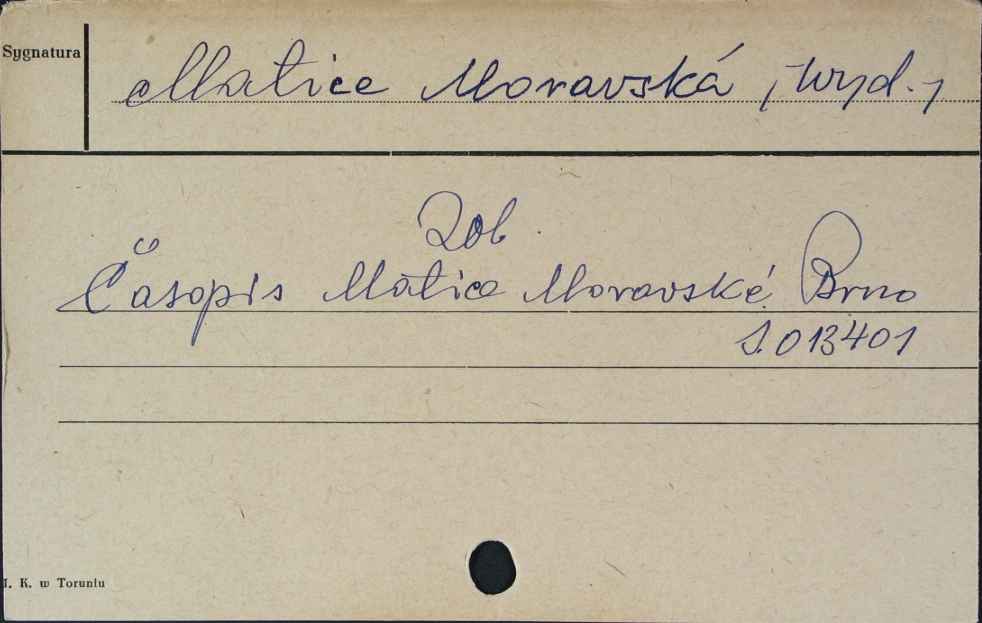 Sygnatura
Matice Moravská /wyd./
Zob.
Časopis Matice Moravské Brno
S. 013401
I. K. w Toruniu